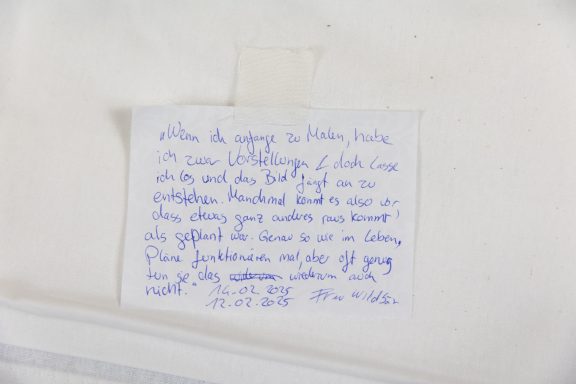 „Wenn ich anfange zu Malen, habe
ich zwar Vorstellungen & doch lasse
ich los und das Bild fängt an zu
entstehen. Manchmal kommt es also vor,
dass etwas ganz anderes raus kommt,
als geplant war. Genau so wie im Leben,
Pläne funktionieren mal, aber oft genug
tun sie das wiederum auch
nicht."
14.02.2025
12.02.2025 Frau